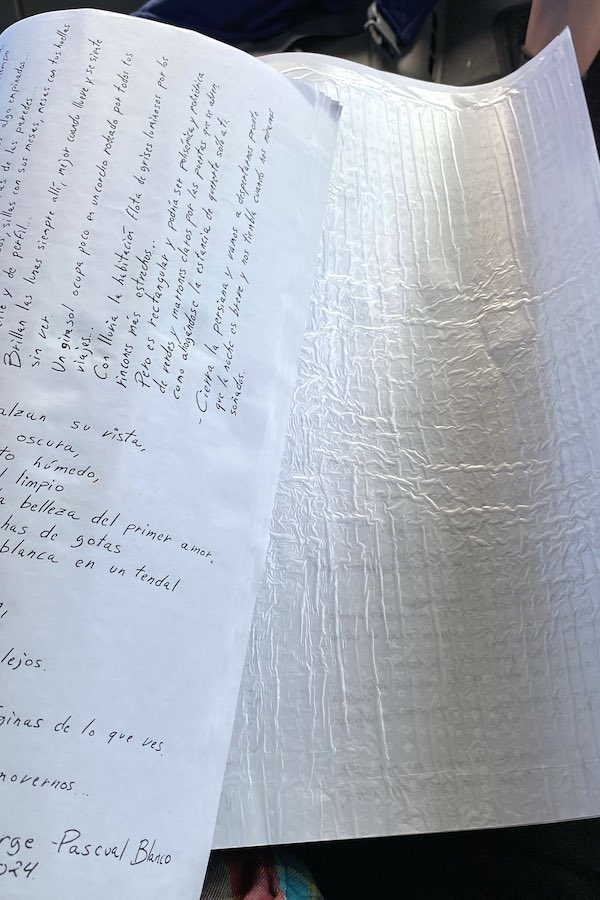 algo empinadas...
de las paredes...
sillas con sus mesas, mesas en tus huellas
y de perfil...
Brillan las lunas siempre allí, mejor cuando llueve y se siente
sin ver.
Un girasol ocupa poco en un corcho rodeado por todos tus
viajes...
Con lluvia la habitación flota de grises luminosos por los
rincones más estrechos...
Pero es rectangular y podría ser polisémica y poliédrica
de verdes y marrones claros por las puertas que se abren,
como ahogándose la estancia de quererte solo a ti.
- Cierra la persiana y vamos a despertarnos pronto
que la noche es breve y nos tiembla cuando nos miramos
soñados.
alzan su vista,
oscura,
húmedo,
limpio
belleza del primer amor.
de gotas
blanca en un tendal
lejos.
de lo que ves.
movernos...
-Pascual Blanco